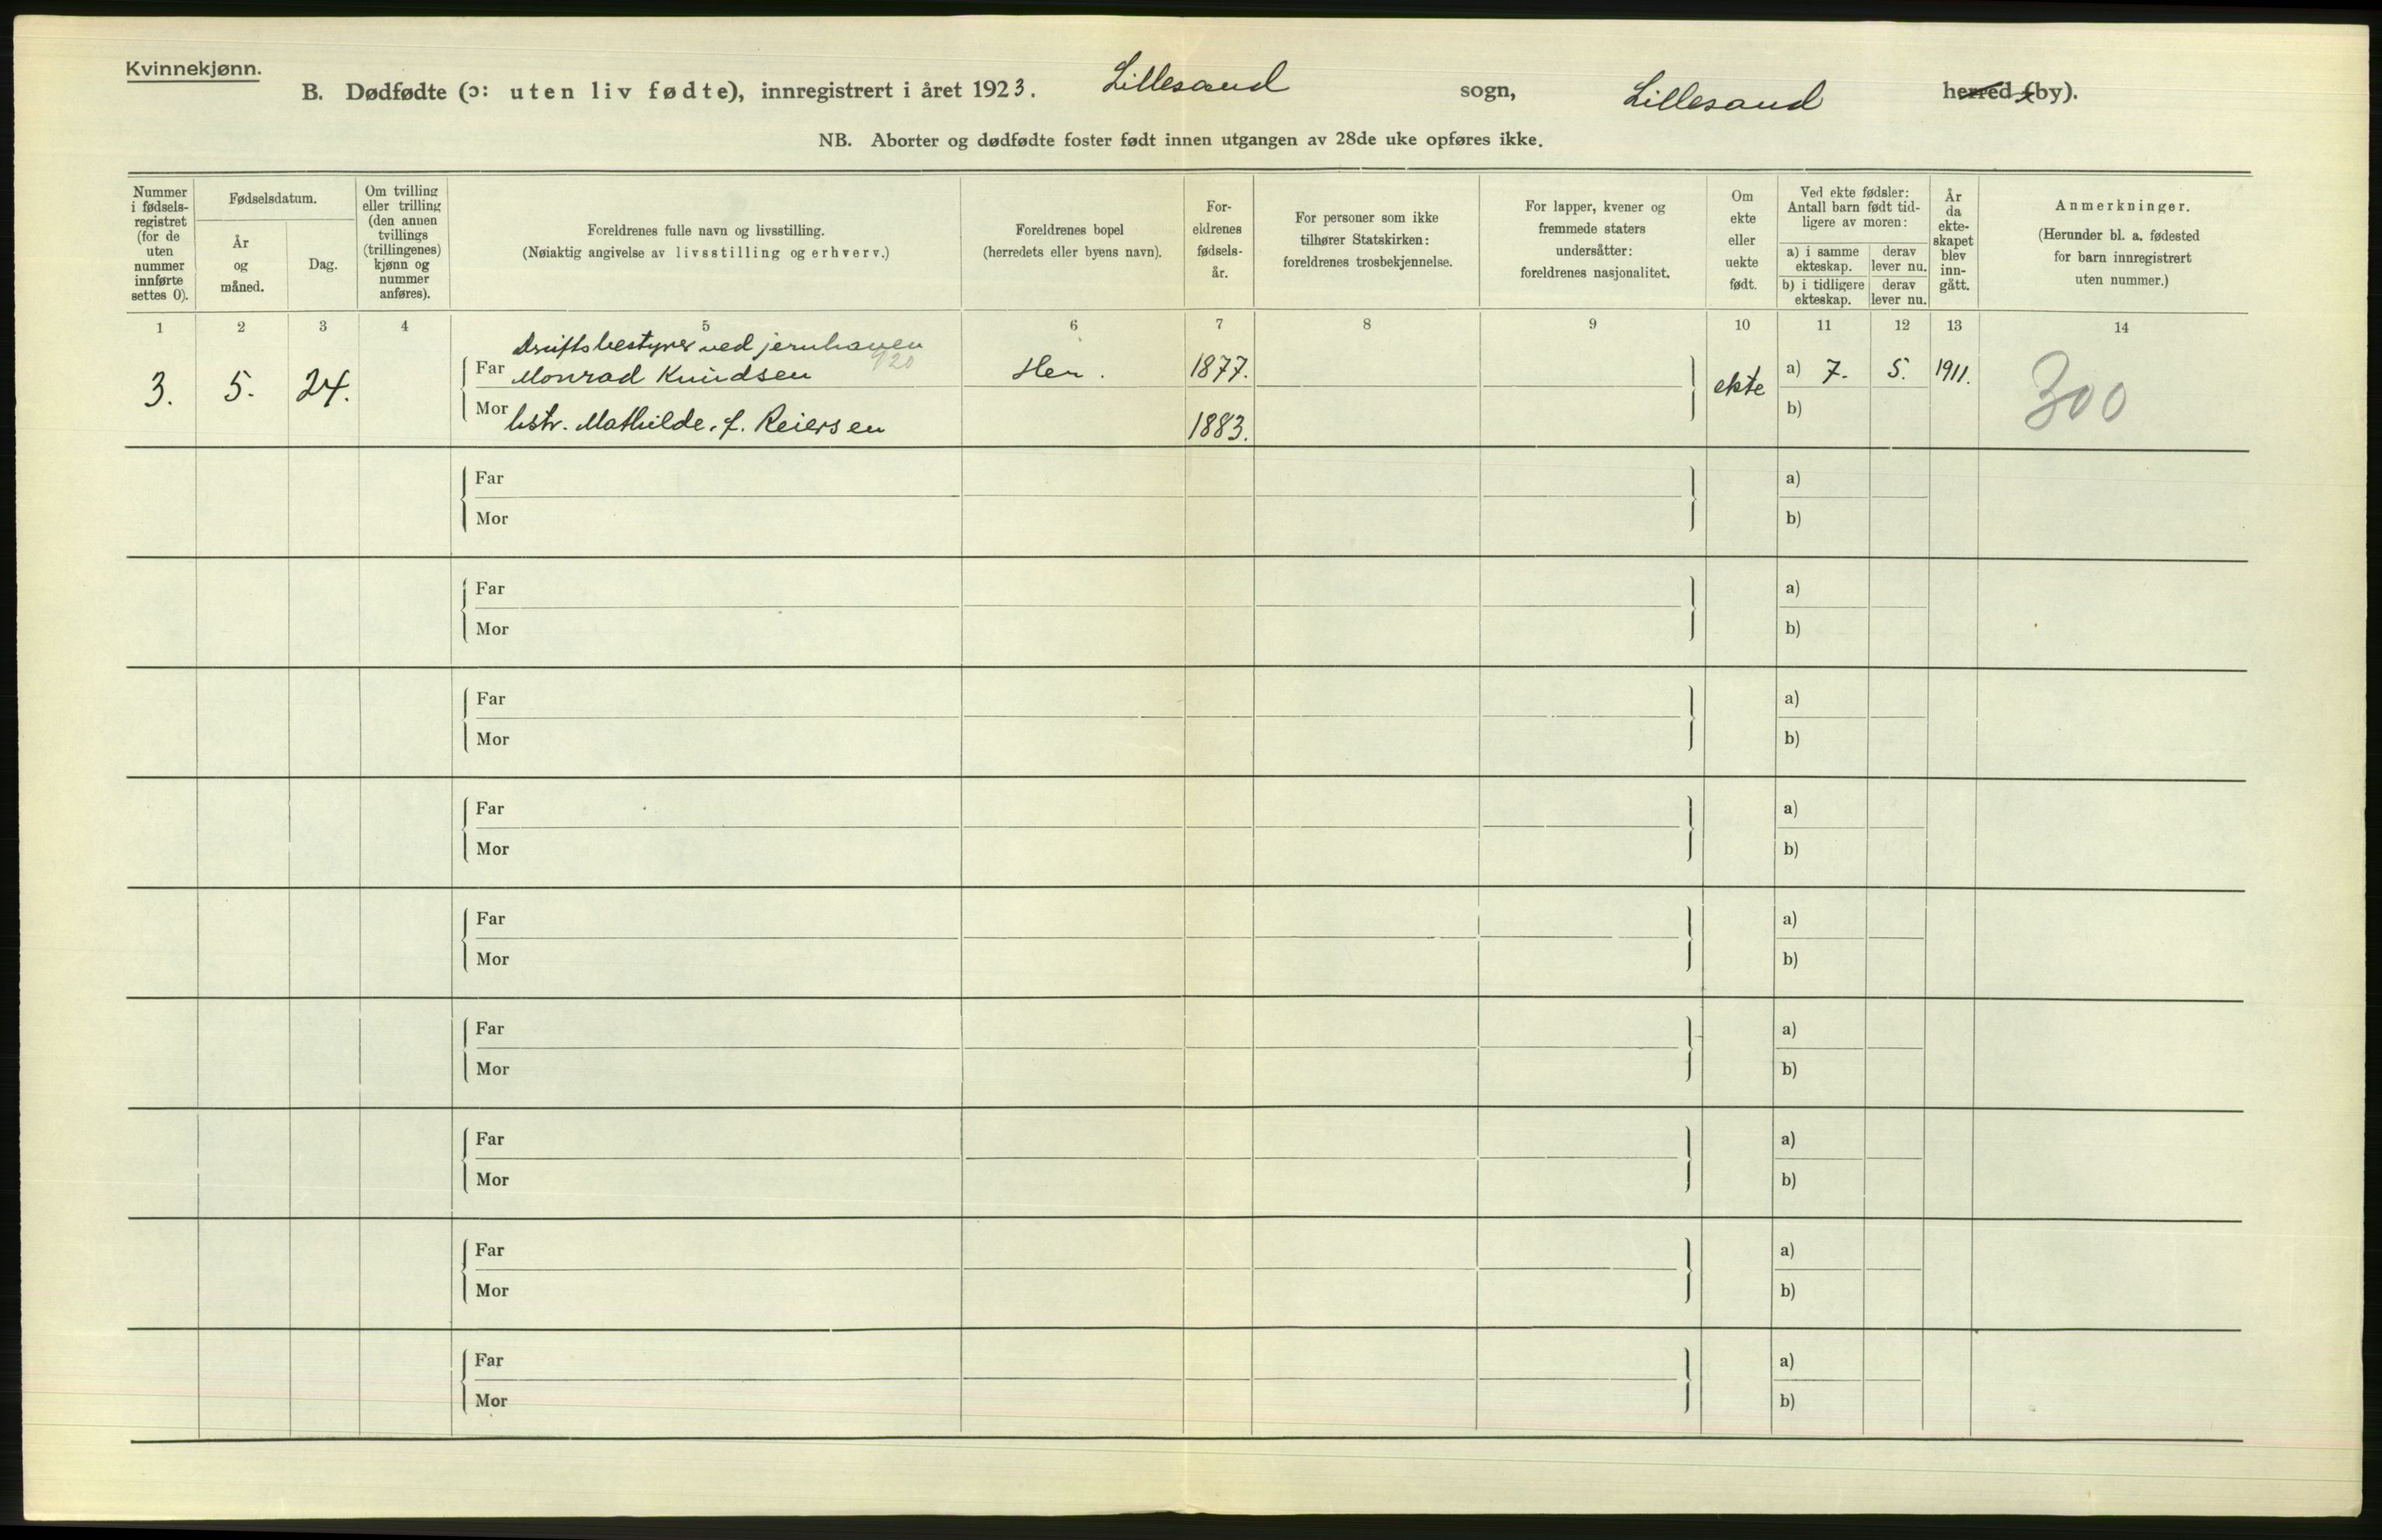 Kvinnekjønn.
B. Dødfødte (ɔ: uten liv fødte), innregistrert i året 1923. Lillesand sogn, Lillesand herred (by).
NB. Aborter og dødfødte foster født innen utgangen av 28de uke opføres ikke.
Nummer
i fødsels-
registret
(for de
uten
nummer
innførte
settes 0).
Fødselsdatum.
År
og
måned.
Dag.
Om tvilling
eller trilling
(den annen
tvillings
(trillingenes)
kjønn og
nummer
anføres).
Foreldrenes fulle navn og livsstilling.
(Nøiaktig angivelse av livsstilling og erhverv.)
Foreldrenes bopel
(herredets eller byens navn).
For-
eldrenes
fødsels-
år.
For personer som ikke
tilhører Statskirken:
foreldrenes trosbekjennelse.
For lapper, kvener og
fremmede staters
undersåtter:
foreldrenes nasjonalitet.
Om
ekte
eller
uekte
født.
Ved ekte fødsler:
Antall barn født tid-
ligere av moren:
a) i samme
ekteskap.
derav
lever nu.
b) i tidligere
ekteskap.
derav
lever nu.
År
da
ekte-
skapet
blev
inn-
gått.
Anmerkninger.
(Herunder bl. a. fødested
for barn innregistrert
uten nummer.)
1 2 3 4 5 6 7 8 9 10 11 12 13 14
Driftsbestyrer ved jernhaven
920
3. 5. 24. Far Monrad Knudsen Her. 1877. ekte a) 7. 5. 1911. 300
Mor hstr. Mathilde, f. Reiersen 1883. b)
Far a)
Mor b)
Far a)
Mor b)
Far a)
Mor b)
Far a)
Mor b)
Far a)
Mor b)
Far a)
Mor b)
Far a)
Mor b)
Far a)
Mor b)
Far a)
Mor b)